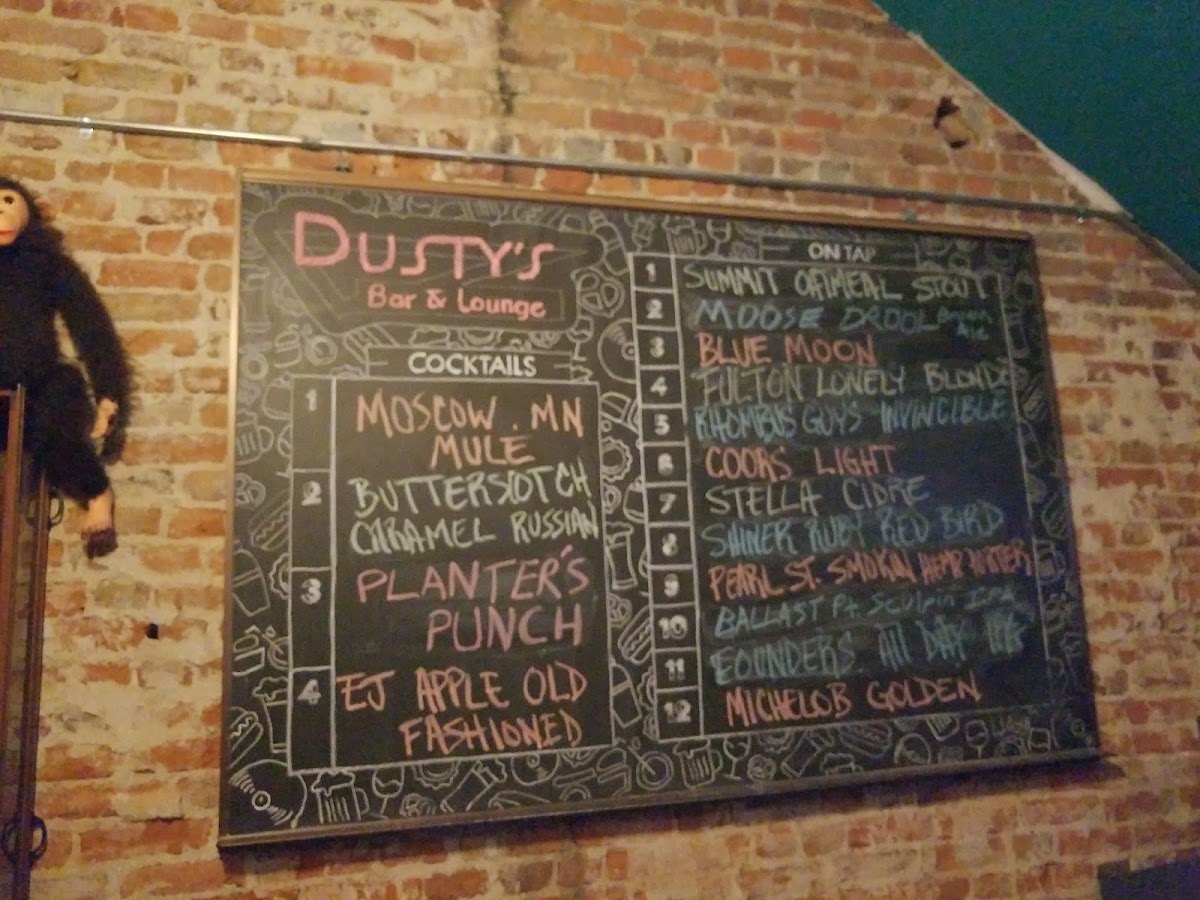 DUSTY'S
Bar & Lounge
COCKTAILS
1 MOSCOW . MN
MULE
2 BUTTERSCOTCH
CARAMEL RUSSIAN
3 PLANTER'S
PUNCH
4 EJ APPLE OLD
FASHIONED
ON TAP
1 SUMMIT OATMEAL STOUT
2 MOOSE DROOL Brown Ale
3 BLUE MOON
4 FULTON LONELY BLONDE
5 RHOMBUS GUYS INVINCIBLE
6 COORS LIGHT
7 STELLA CIDRE
8 SHINER RUBY RED BIRD
9 PEARL ST. SMOKIN HEMP PORTER
10 BALLAST Pt. Sculpin IPA
11 FOUNDERS All DAY IPA
12 MICHELOB GOLDEN